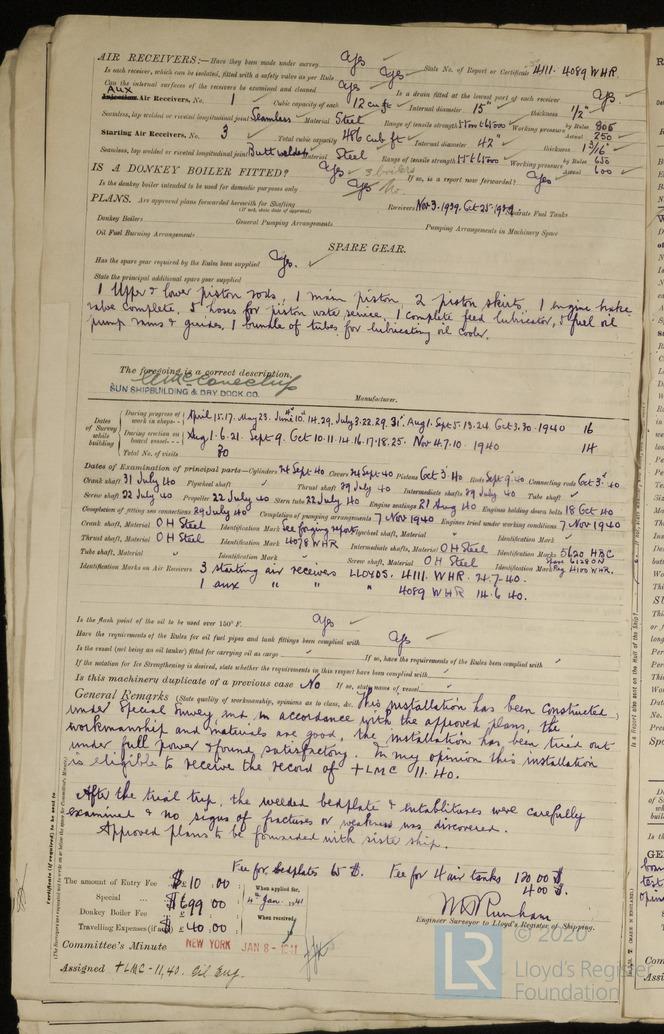 AIR RECEIVERS:—Have they been made under survey Yes ✓ State No. of Report or Certificate 4111. 4089 WHR.
Is each receiver, which can be isolated, fitted with a safety valve as per Rule Yes ✓
Can the internal surfaces of the receivers be examined and cleaned Yes ✓ Is a drain fitted at the lowest part of each receiver Yes.
Aux
Injection Air Receivers, No. 1 ✓ Cubic capacity of each 12 cu ft ✓ Internal diameter 15" thickness 1/2" ✓
Seamless, lap welded or riveted longitudinal joint Seamless ✓ Material Steel Range of tensile strength Working pressure by Rules 805
Actual 250 ✓
Starting Air Receivers, No. 3 ✓ Total cubic capacity 486 cub ft ✓ Internal diameter 42" ✓ thickness 1 3/16" ✓
Seamless, lap welded or riveted longitudinal joint Butt welded Material Steel Range of tensile strength 55 to 65000 Working pressure by Rules 650
Actual 600 ✓
IS A DONKEY BOILER FITTED? Yes ✓ 3 boilers If so, is a report now forwarded? Yes ✓
Is the donkey boiler intended to be used for domestic purposes only Yes No.
PLANS. Are approved plans forwarded herewith for Shafting Receivers Nov 3. 1939. Oct 25. 1939. Separate Fuel Tanks
(If not, state date of approval)
Donkey Boilers General Pumping Arrangements Pumping Arrangements in Machinery Space
Oil Fuel Burning Arrangements
SPARE GEAR.
Has the spare gear required by the Rules been supplied Yes. ✓
State the principal additional spare gear supplied
1 Upper & lower piston rods, 1 main piston, 2 piston skirts, 1 engine
valve complete, 5 hoses for piston water service, 1 complete feed lubricator, 5 fuel oil
pump rams & guides, 1 bundle of tubes for lubricating oil cooler.
The foregoing is a correct description,
SUN SHIPBUILDING & DRY DOCK CO. Manufacturer.
Dates of Survey while building
During progress of work in shops - - April 15. 17. May 23. June 10. 14. 29. July 3. 22. 29. 31. Aug 1. Sept 5. 13. 24. Oct 3. 30. 1940 16
During erection on board vessel - - Aug 1. 6. 21. Sept 9. Oct 10. 11. 14. 16. 17. 18. 25. Nov 4. 7. 10. 1940 14
Total No. of visits 30
Dates of Examination of principal parts—Cylinders 24 Sept 40 Covers 24 Sept 40 Pistons Oct 3. 40 Rods Sept 9. 40 Connecting rods Oct 3. 40
Crank shaft 31 July 40 Flywheel shaft ✓ Thrust shaft 29 July 40 Intermediate shafts 29 July 40 Tube shaft ✓
Screw shaft 22 July 40 Propeller 22 July 40 Stern tube 22 July 40 Engine seatings 21 Aug 40 Engines holding down bolts 18 Oct 40
Completion of fitting sea connections 29 July 40 Completion of pumping arrangements 7 Nov 1940 Engines tried under working conditions 7 Nov 1940
Crank shaft, Material O H Steel Identification Mark See forging report Flywheel shaft, Material Identification Mark ✓
Thrust shaft, Material O H Steel Identification Mark 4078 WHR Intermediate shafts, Material O H Steel Identification Marks 5620 HBC
Tube shaft, Material " Identification Mark " Screw shaft, Material O H Steel Identification Mark 4100 WHR.
Identification Marks on Air Receivers 3 starting air receivers LLOYDS. 4111. WHR. 2.7.40.
1 aux " " " 4089 WHR 14.6.40.
Is the flash point of the oil to be used over 150° F. Yes ✓
Have the requirements of the Rules for oil fuel pipes and tank fittings been complied with Yes ✓
Is the vessel (not being an oil tanker) fitted for carrying oil as cargo ✓ If so, have the requirements of the Rules been complied with ✓
If the notation for Ice Strengthening is desired, state whether the requirements in this respect have been complied with ✓
Is this machinery duplicate of a previous case No If so, state name of vessel ✓
General Remarks (State quality of workmanship, opinions as to class, &c. This installation has been constructed
under Special Survey, and in accordance with the approved plans, the
workmanship and materials are good, the installation has been tried out
under full power & found satisfactory. In my opinion this installation
is eligible to receive the record of +LMC 11.40.
After the trial trip, the welded bedplate & entablatures were carefully
examined & no signs of fractures or weakness was discovered.
Approved plans to be forwarded with sister ship.
Fee for bedplates 65 $. Fee for 4 air tanks 120.00 $
400 $.
The amount of Entry Fee $ 10.00 When applied for,
Special 699.00 4th Jan 1941
Donkey Boiler Fee When received,
Travelling Expenses (if any) $ 40.00
Engineer Surveyor to Lloyd's Register of Shipping.
Committee's Minute NEW YORK JAN 8 - 1941
Assigned +LMC - 11.40. Oil Eng.
© 2020
LR
Lloyd's Register
Foundation